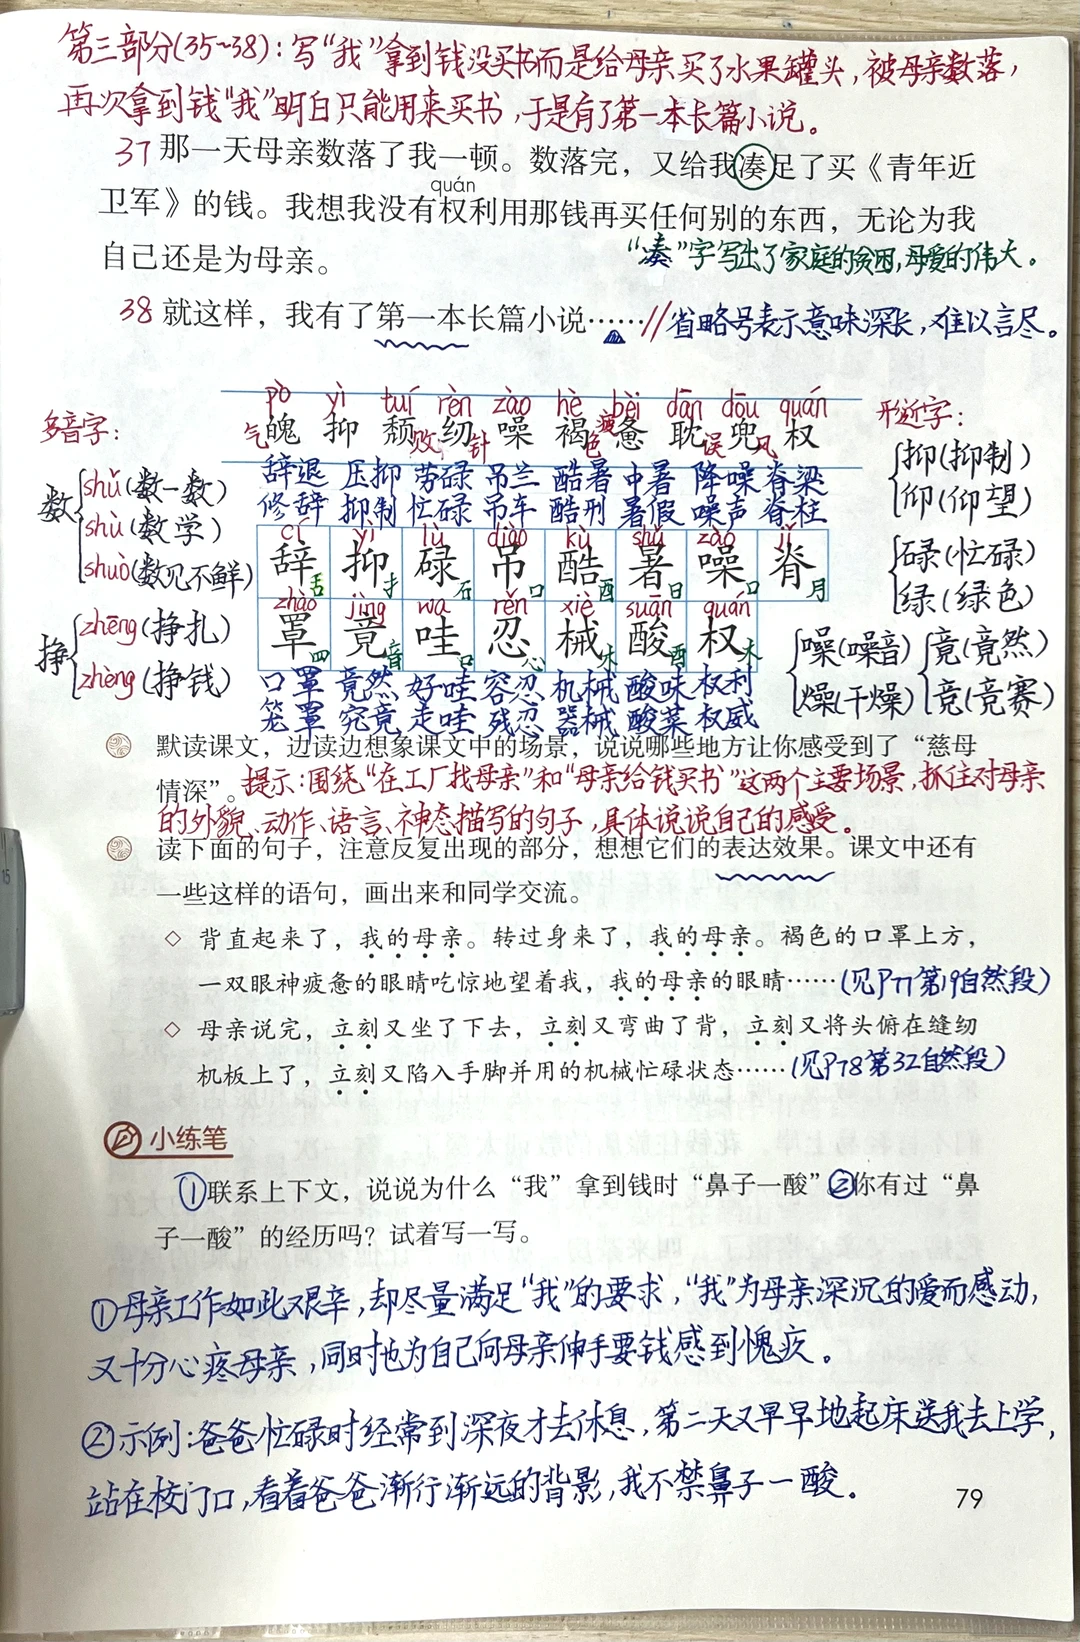 第三部分(35~38):写“我”拿到钱没买书而是给母亲买了水果罐头,被母亲数落,
再次拿到钱“我”明白只能用来买书,于是有了第一本长篇小说。
37 那一天母亲数落了我一顿。数落完，又给我凑足了买《青年近
quán
卫军》的钱。我想我没有权利用那钱再买任何别的东西，无论为我
自己还是为母亲。
“凑”字写出了家庭的贫困,母爱的伟大。
38 就这样，我有了第一本长篇小说……//省略号表示意味深长,难以言尽。
pò yì tuí rèn zào hè bèi dān dōu quán
气魄 抑 颓败 纫针 噪 褐色 疲惫 耽误 兜风 权
多音字:
数
shǔ(数一数)
shù(数学)
shuò(数见不鲜)
挣
zhēng(挣扎)
zhèng(挣钱)
辞退 压抑 劳碌 吊兰 酷暑 中暑 降噪 脊梁
修辞 抑制 忙碌 吊车 酷刑 暑假 噪声 脊柱
cí yì lù diào kù shǔ zào jǐ
辞 抑 碌 吊 酷 暑 噪 脊
舌 扌 石 口 酉 日 口 月
zhào jìng wa rěn xiè suān quán
罩 竟 哇 忍 械 酸 权
罒 音 口 心 木 酉 木
口罩 竟然 好哇 容忍 机械 酸味 权利
笼罩 究竟 走哇 残忍 器械 酸菜 权威
形近字:
抑(抑制)
仰(仰望)
碌(忙碌)
绿(绿色)
噪(噪音)
燥(干燥)
竟(竟然)
竞(竞赛)
默读课文，边读边想象课文中的场景，说说哪些地方让你感受到了“慈母
情深”。提示:围绕“在工厂找母亲”和“母亲给钱买书”这两个主要场景,抓住对母亲
的外貌、动作、语言、神态描写的句子,具体说说自己的感受。
读下面的句子，注意反复出现的部分，想想它们的表达效果。课文中还有
一些这样的语句，画出来和同学交流。
◇ 背直起来了，我的母亲。转过身来了，我的母亲。褐色的口罩上方，
一双眼神疲惫的眼睛吃惊地望着我，我的母亲的眼睛……(见P77第19自然段)
◇ 母亲说完，立刻又坐了下去，立刻又弯曲了背，立刻又将头俯在缝纫
机板上了，立刻又陷入手脚并用的机械忙碌状态……(见P78第32自然段)
小练笔
①联系上下文，说说为什么“我”拿到钱时“鼻子一酸”②你有过“鼻
子一酸”的经历吗？试着写一写。
①母亲工作如此艰辛,却尽量满足“我”的要求,“我”为母亲深沉的爱而感动,
又十分心疼母亲,同时也为自己向母亲伸手要钱感到愧疚。
②示例:爸爸忙碌时经常到深夜才去休息,第二天又早早地起床送我去上学,
站在校门口,看着爸爸渐行渐远的背影,我不禁鼻子一酸。
79
15